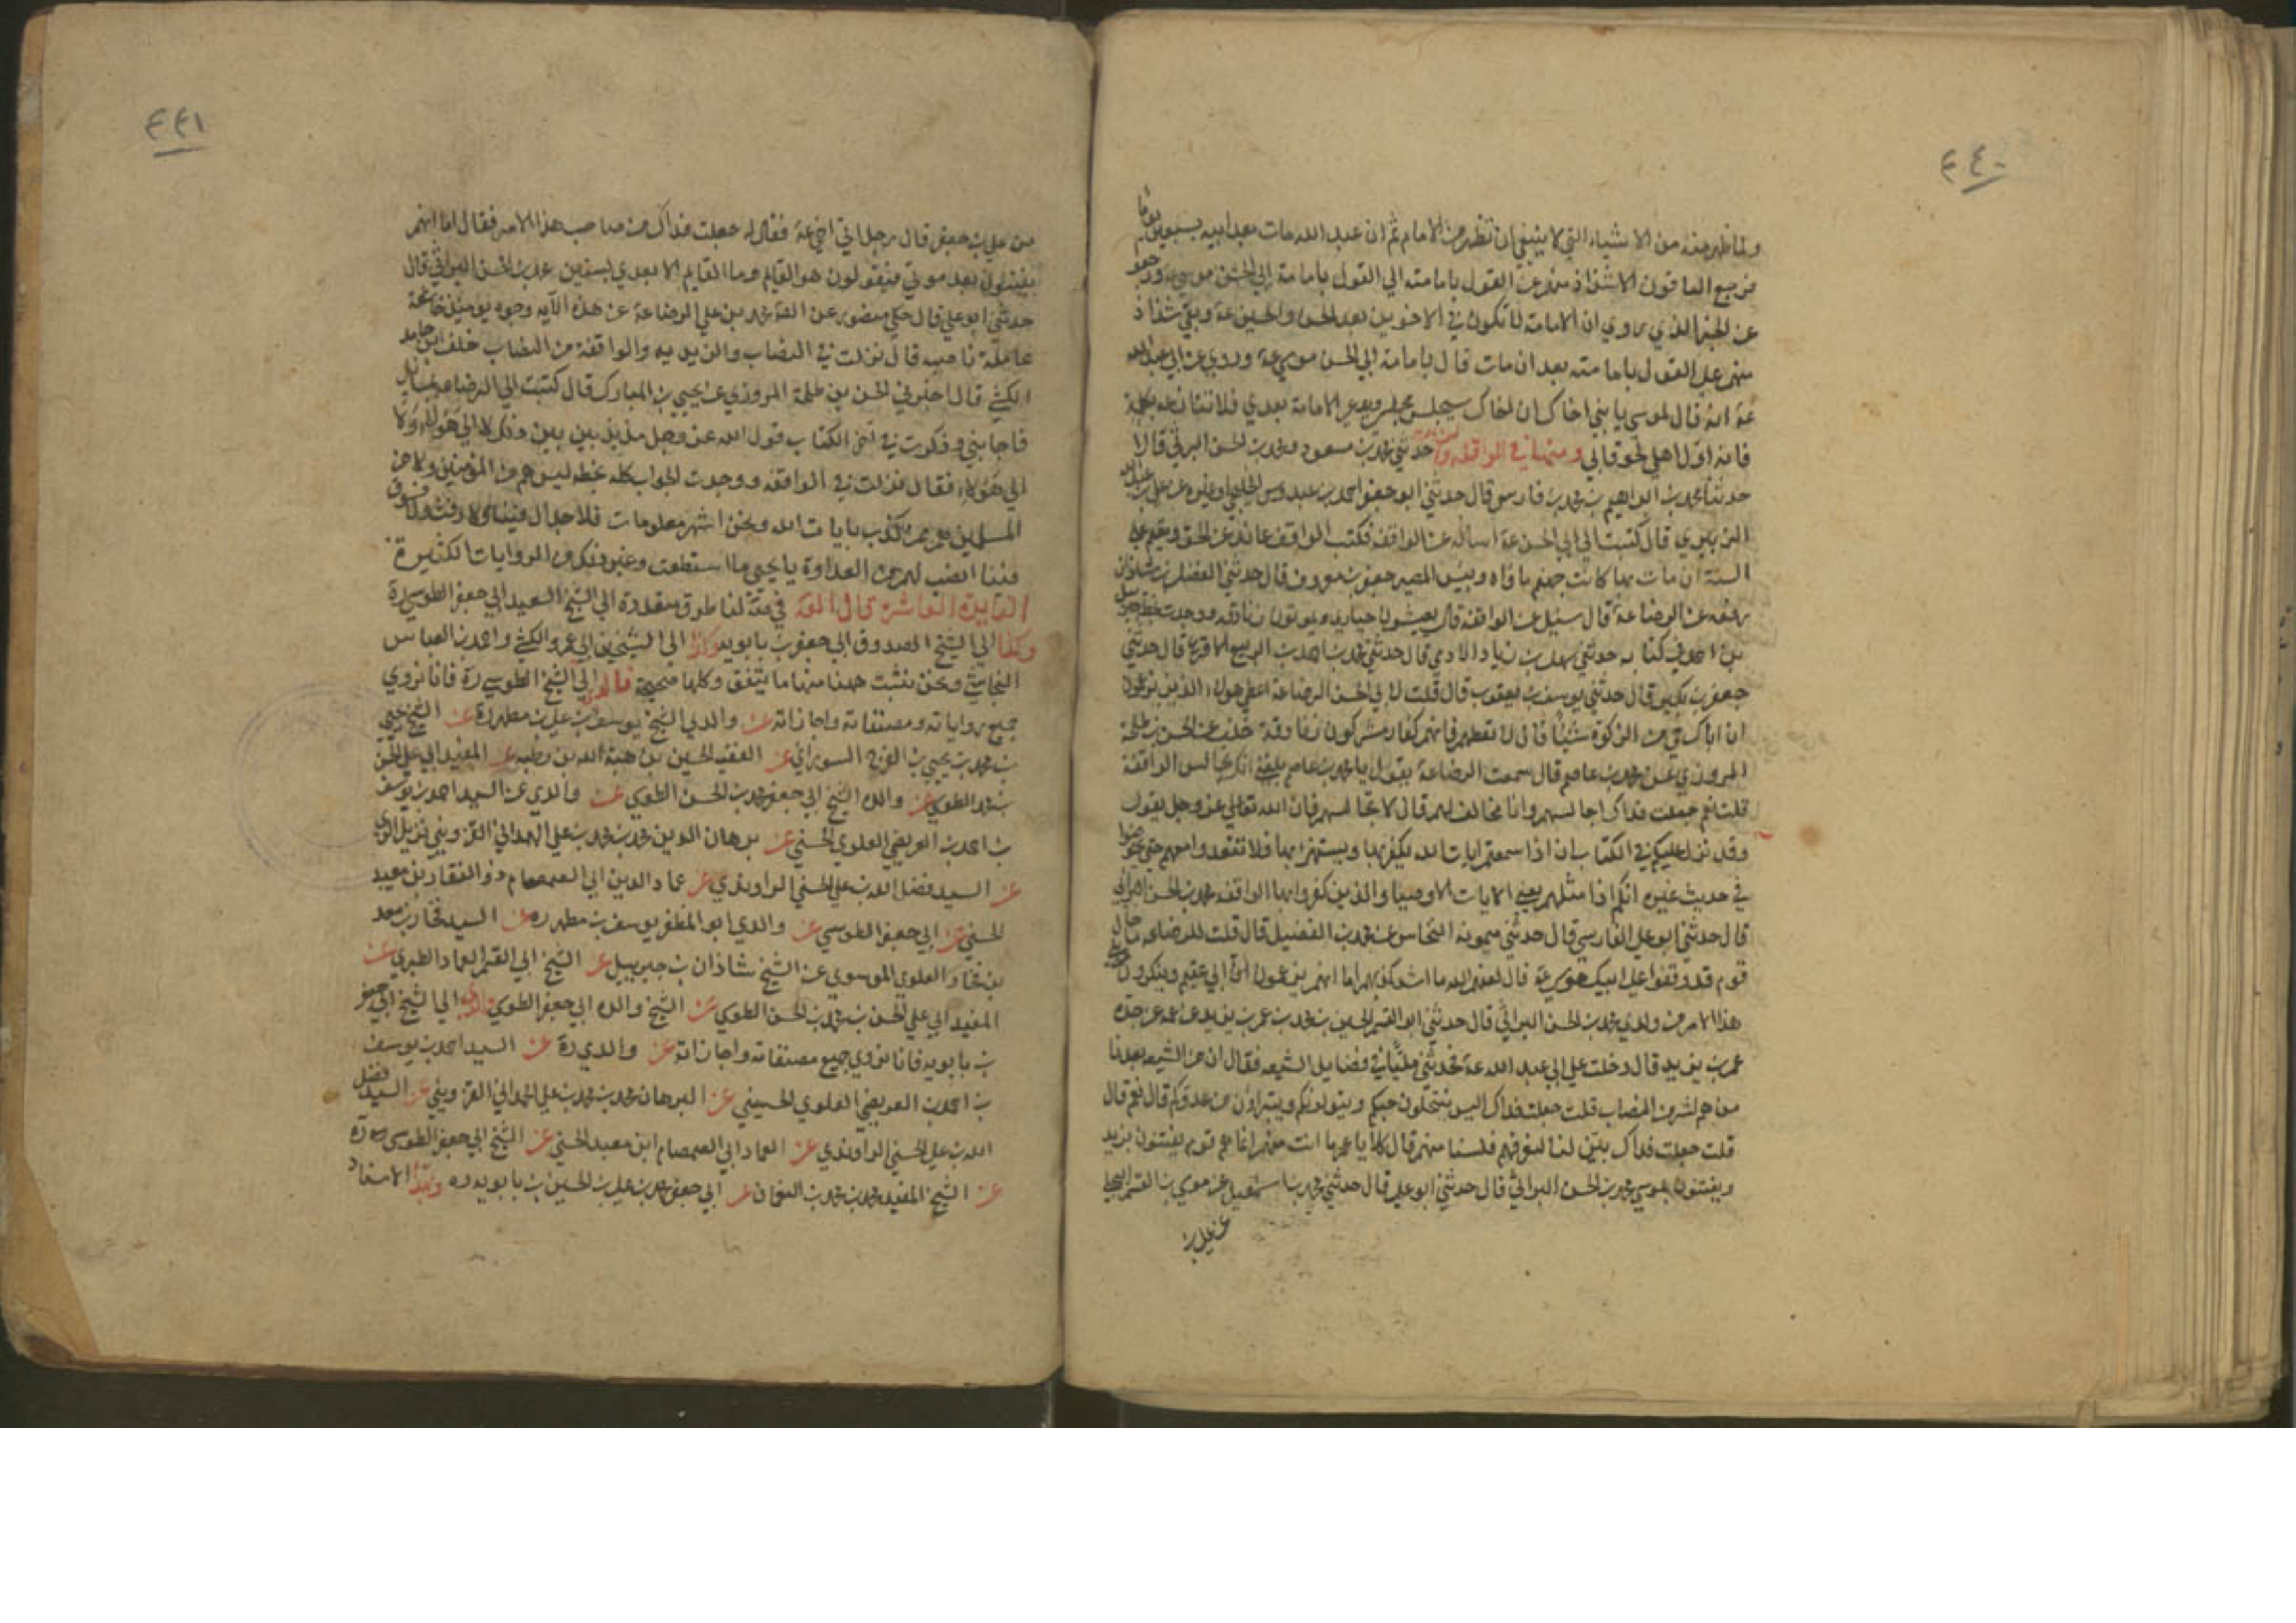 ٤٤٠
ولما ظهر منه من الاشياء التي لا ينبغي ان تظهر من الامام ثم ان عبد الله مات بعد ابيه بسبعين يوما
فرجع الباقون الا شذاذ منهم عن القول بامامته الي القول بامامة ابي الحسن موسي ع ورجعوا
عن الخبر الذي روي ان الامامة لا تكون في الاخوين بعد الحسن والحسين ع وبقي شذاذ
منهم علي القول بامامته بعد ان مات قال بامامة ابي الحسن موسي ع وروي عن ابي عبد الله
ع انه قال لموسي يا بني اخاك ان اخاك سيجلس مجلسي ويدعي الامامة بعدي فلا تنازعه بكلمة
فانه اول اهلي لحوقا بي ومنها في الواقفة حدثني محمد بن مسعود ومحمد بن الحسن البرثي قالا
حدثنا محمد بن ابراهيم بن محمد بن فارس قال حدثني ابو جعفر احمد بن عبدوس الخلنجي او غيره عن علي بن عبد الله
الزبيري قال كتبت الي ابي الحسن ع اساله عن الواقفة فكتب الواقف عاند عن الحق ومقيم علي
السيئة ان مات بها كانت جهنم ماواه وبيس المصير جعفر بن معروف قال حدثني الفضل بن شاذان
رفعه عن الرضا ع قال سئل عن الواقفة قال يعيشون حياري ويموتون زنادقة ووجدت بخط جبريل
بن احمد في كتابه حدثني سهل بن زياد الادمي قال حدثني محمد بن احمد بن الربيع الاقرع قال حدثني
جعفر بن بكير قال حدثني يوسف بن يعقوب قال قلت لابي الحسن الرضا ع اعطي هولاء الذين يزعمون
ان اباك حي من الزكوة شيئا قال لا تعطهم فانهم كفار مشركون زنادقة خلف عن الحسن بن طلحة
المروزي عن محمد بن عاصم قال سمعت الرضا ع يقول يا محمد بن عاصم بلغني انك تجالس الواقفة
قلت نعم جعلت فداك اجالسهم وانا مخالف لهم قال لا تجالسهم فان الله تعالي عز وجل يقول
وقد نزل عليكم في الكتاب ان اذا سمعتم ايات الله يكفر بها ويستهزا بها فلا تقعدوا معهم حتي يخوضوا
في حديث غيره انكم اذا مثلهم يعني الايات الاوصيا والذين كفروا بها الواقفة محمد بن الحسن البراثي
قال حدثني ابو علي الفارسي قال حدثني ميمونه النحاس عن محمد بن الفضيل قال قلت للرضا ع ما حال
قوم قد وقفوا علي ابيك موسي ع قال لعنهم الله ما اشد كذبهم اما انهم يزعمون اني عقيم وينكرون من يلي
هذا الامر من ولدي محمد بن الحسن البراثي قال حدثني ابو القسم الحسين بن محمد بن عمر بن يزيد عن عمه عن جده
عمر بن يزيد قال دخلت علي ابي عبد الله ع فحدثني مليا في فضايل الشيعه فقال ان من الشيعه بعدنا
من هم شر من النصاب قلت جعلت فداك اليس ينتحلون حبكم ويتولونكم ويتبراون من عدوكم قال نعم قال
قلت جعلت فداك بين لنا لنعرفهم فلسنا منهم قال كلا يا عمر ما انت منهم انما هم قوم يفتنون بزيد
ويفتنون بموسي محمد بن الحسن البراثي قال حدثني ابو علي قال حدثني محمد بن اسمعيل عن موسي بن القسم البجلي
عن علي بن
٤٤١
عن علي بن جعفر قال رجل اتي اخي ع فقال له جعلت فداك من صاحب هذا الامر فقال اما انهم
يفتنون بعد موتي فيقولون هو القايم وما القايم الا بعدي بسنين محمد بن الحسن البراثي قال
حدثني ابو علي قال حكي منصور عن الصادق محمد بن علي الرضا ع عن هذه الايه وجوه يومئذ خاشعة
عاملة ناصبه قال نزلت في النصاب والزيديه والواقفة من النصاب خلف ابن حامد
الكشي قال اخبرني الحسن بن طلحة المروزي عن يحيي بن المبارك قال كتبت الي الرضا ع بمسايل
فاجابني وذكرت في اخر الكتاب قول الله عز وجل مذبذبين بين ذلك لا الي هؤلاء ولا
الي هؤلاء فقال نزلت في الواقفه ووجدت الجواب كله بخطه ليس هم من المؤمنين ولا من
المسلمين هم ممن كذب بايات الله ونحن اشهر معلومات فلا جدال فينا ولا رفث ولا فسوق
فينا انصب لهم من العداوة يا يحيي ما استطعت وغير ذلك من الروايات الكثيرة
الفايدة العاشرة قال العلامة في صة لنا طرق متعددة الي الشيخ السعيد ابي جعفر الطوسي ره
وكذا الي الشيخ الصدوق ابي جعفر بن بابويه وكذا الي الشيخين ابي عمرو الكشي واحمد بن العباس
النجاشي ونحن نثبت ههنا منها ما يتفق وكلها صحيحة فالذي الي الشيخ الطوسي ره فانا نروي
جميع رواياته ومصنفاته واجازاته عن والدي الشيخ يوسف بن علي بن مطهر ره عن الشيخ يحيي
بن محمد بن يحيي بن الفرج السوراوي عن الفقيه الحسين بن هبة الله بن رطبه عن المفيد ابي علي الحسن
بن محمد الطوسي عن والده الشيخ ابي جعفر محمد بن الحسن الطوسي عن والدي عن السيد احمد بن يوسف
بن احمد بن العريضي العلوي الحسني عن برهان الدين محمد بن محمد بن علي الهمداني القزويني نزيل الري
عن السيد فضل الله بن علي الحسني الراوندي عن عماد الدين ابي الصمصام ذو الفقار بن معبد
الحسني عن ابي جعفر الطوسي عن والدي ابو المظفر يوسف بن مطهر ره عن السيد فخار بن معد
بن فخار العلوي الموسوي عن الشيخ شاذان بن جبرييل عن الشيخ ابي القسم العماد الطبري عن
المفيد ابي علي الحسن بن محمد بن الحسن الطوسي عن الشيخ والده ابي جعفر الطوسي والذي الي الشيخ ابي جعفر
بن بابويه فانا نروي جميع مصنفاته واجازاته عن والدي ره عن السيد احمد بن يوسف
بن احمد بن العريضي العلوي الحسيني عن البرهان محمد بن محمد بن علي الحمداني القزويني عن السيد فضل
الله بن علي الحسني الراوندي عن العماد ابي الصمصام ابن معبد الحسني عن الشيخ ابي جعفر الطوسي ره
عن الشيخ المفيد محمد بن محمد بن النعمان عن ابي جعفر محمد بن علي بن الحسين بن بابويه ره وبهذا الاسناد